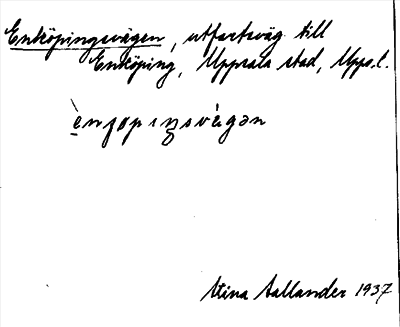 Enköpingsvägen, utfartsväg till
Enköping, Uppsala stad, Upps.l.
Stina Hallander 1937